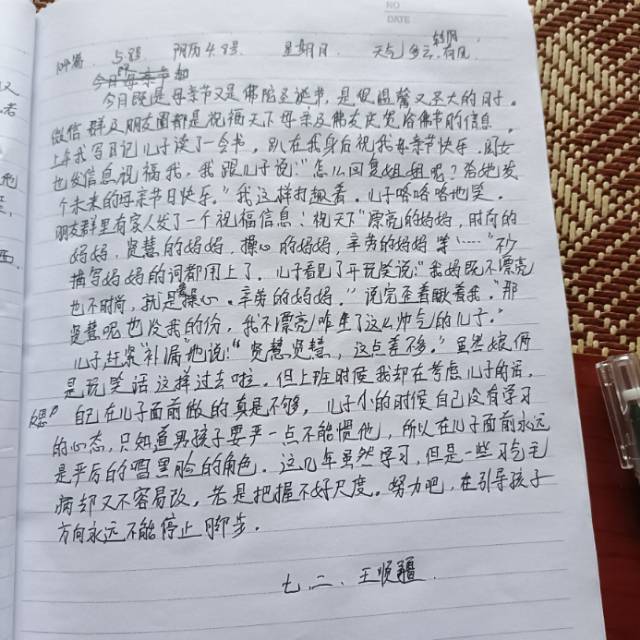 NO
DATE
5.8号 阴历4.8号 星期日 天气多云 转阴 有风
今日既是母亲节又是佛陀圣诞节，是个温馨又圣大的日子。
微信群及朋友圈都是祝福天下母亲及佛友庆贺浴佛节的信息。
上午我写日记儿子读了一会书，趴在我身后祝我母亲节快乐，闺女
也发信息祝福我，我跟儿子说："怎么回复姐姐呢？给她发
个未来的母亲节日快乐。"我这样打趣着，儿子咯咯咯地笑。
朋友群里有家人发了一个祝福信息：祝天下"漂亮的妈妈，时尚的
妈妈，贤慧的妈妈，操心的妈妈，辛劳的妈妈等……"把
描写妈妈的词都用上了。儿子看见了开玩笑说："我妈既不漂亮
也不时尚，就是操心，辛劳的妈妈。"说完歪着瞅着我。"那
贤慧呢也没我的份，我不漂亮咋生了这么帅气的儿子。"
儿子赶紧"补漏"地说："贤慧贤慧，这点差不多。"虽然娘俩
是玩笑话这样过去啦，但上班时候我却在考虑儿子的话，
反思自己在儿子面前做的真是不够，儿子小的时候自己没有学习
的心态，只知道男孩子要严一点不能惯他，所以在儿子面前永远
是严厉的唱黑脸的角色。这几年虽然学习，但是一些习气毛
病却又不容易改，老是把握不好尺度。努力吧，在引导孩子
方向永远不能停止脚步。
七、二、王顺疆